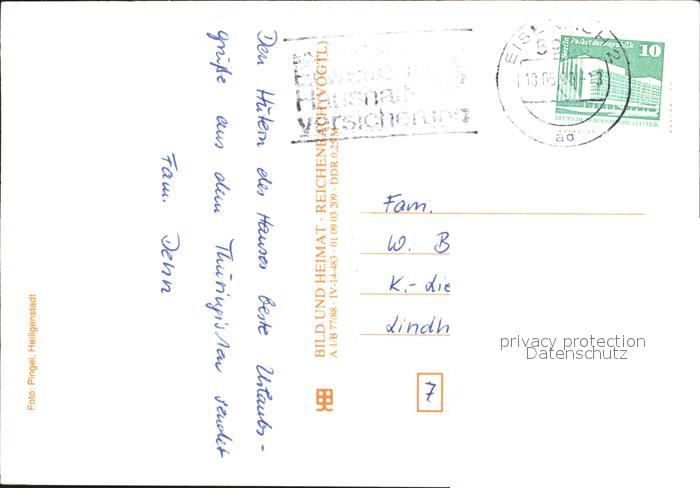 Den Hütern des Hauses beste Urlaubs-
grüße aus dem Thüringischen sendet
Fam. Dehn
Foto: Pingel, Heiligenstadt
BILD UND HEIMAT · REICHENBACH (VOGTL)
A 1/B 77/88 · IV-14-483 · 01 09 03 209 · DDR 0,25 M
Haushalt
versicherung
Berlin Palast der Republik 10
Fam.
W. B
K.-Lie
Lindh
7
privacy protection
Datenschutz